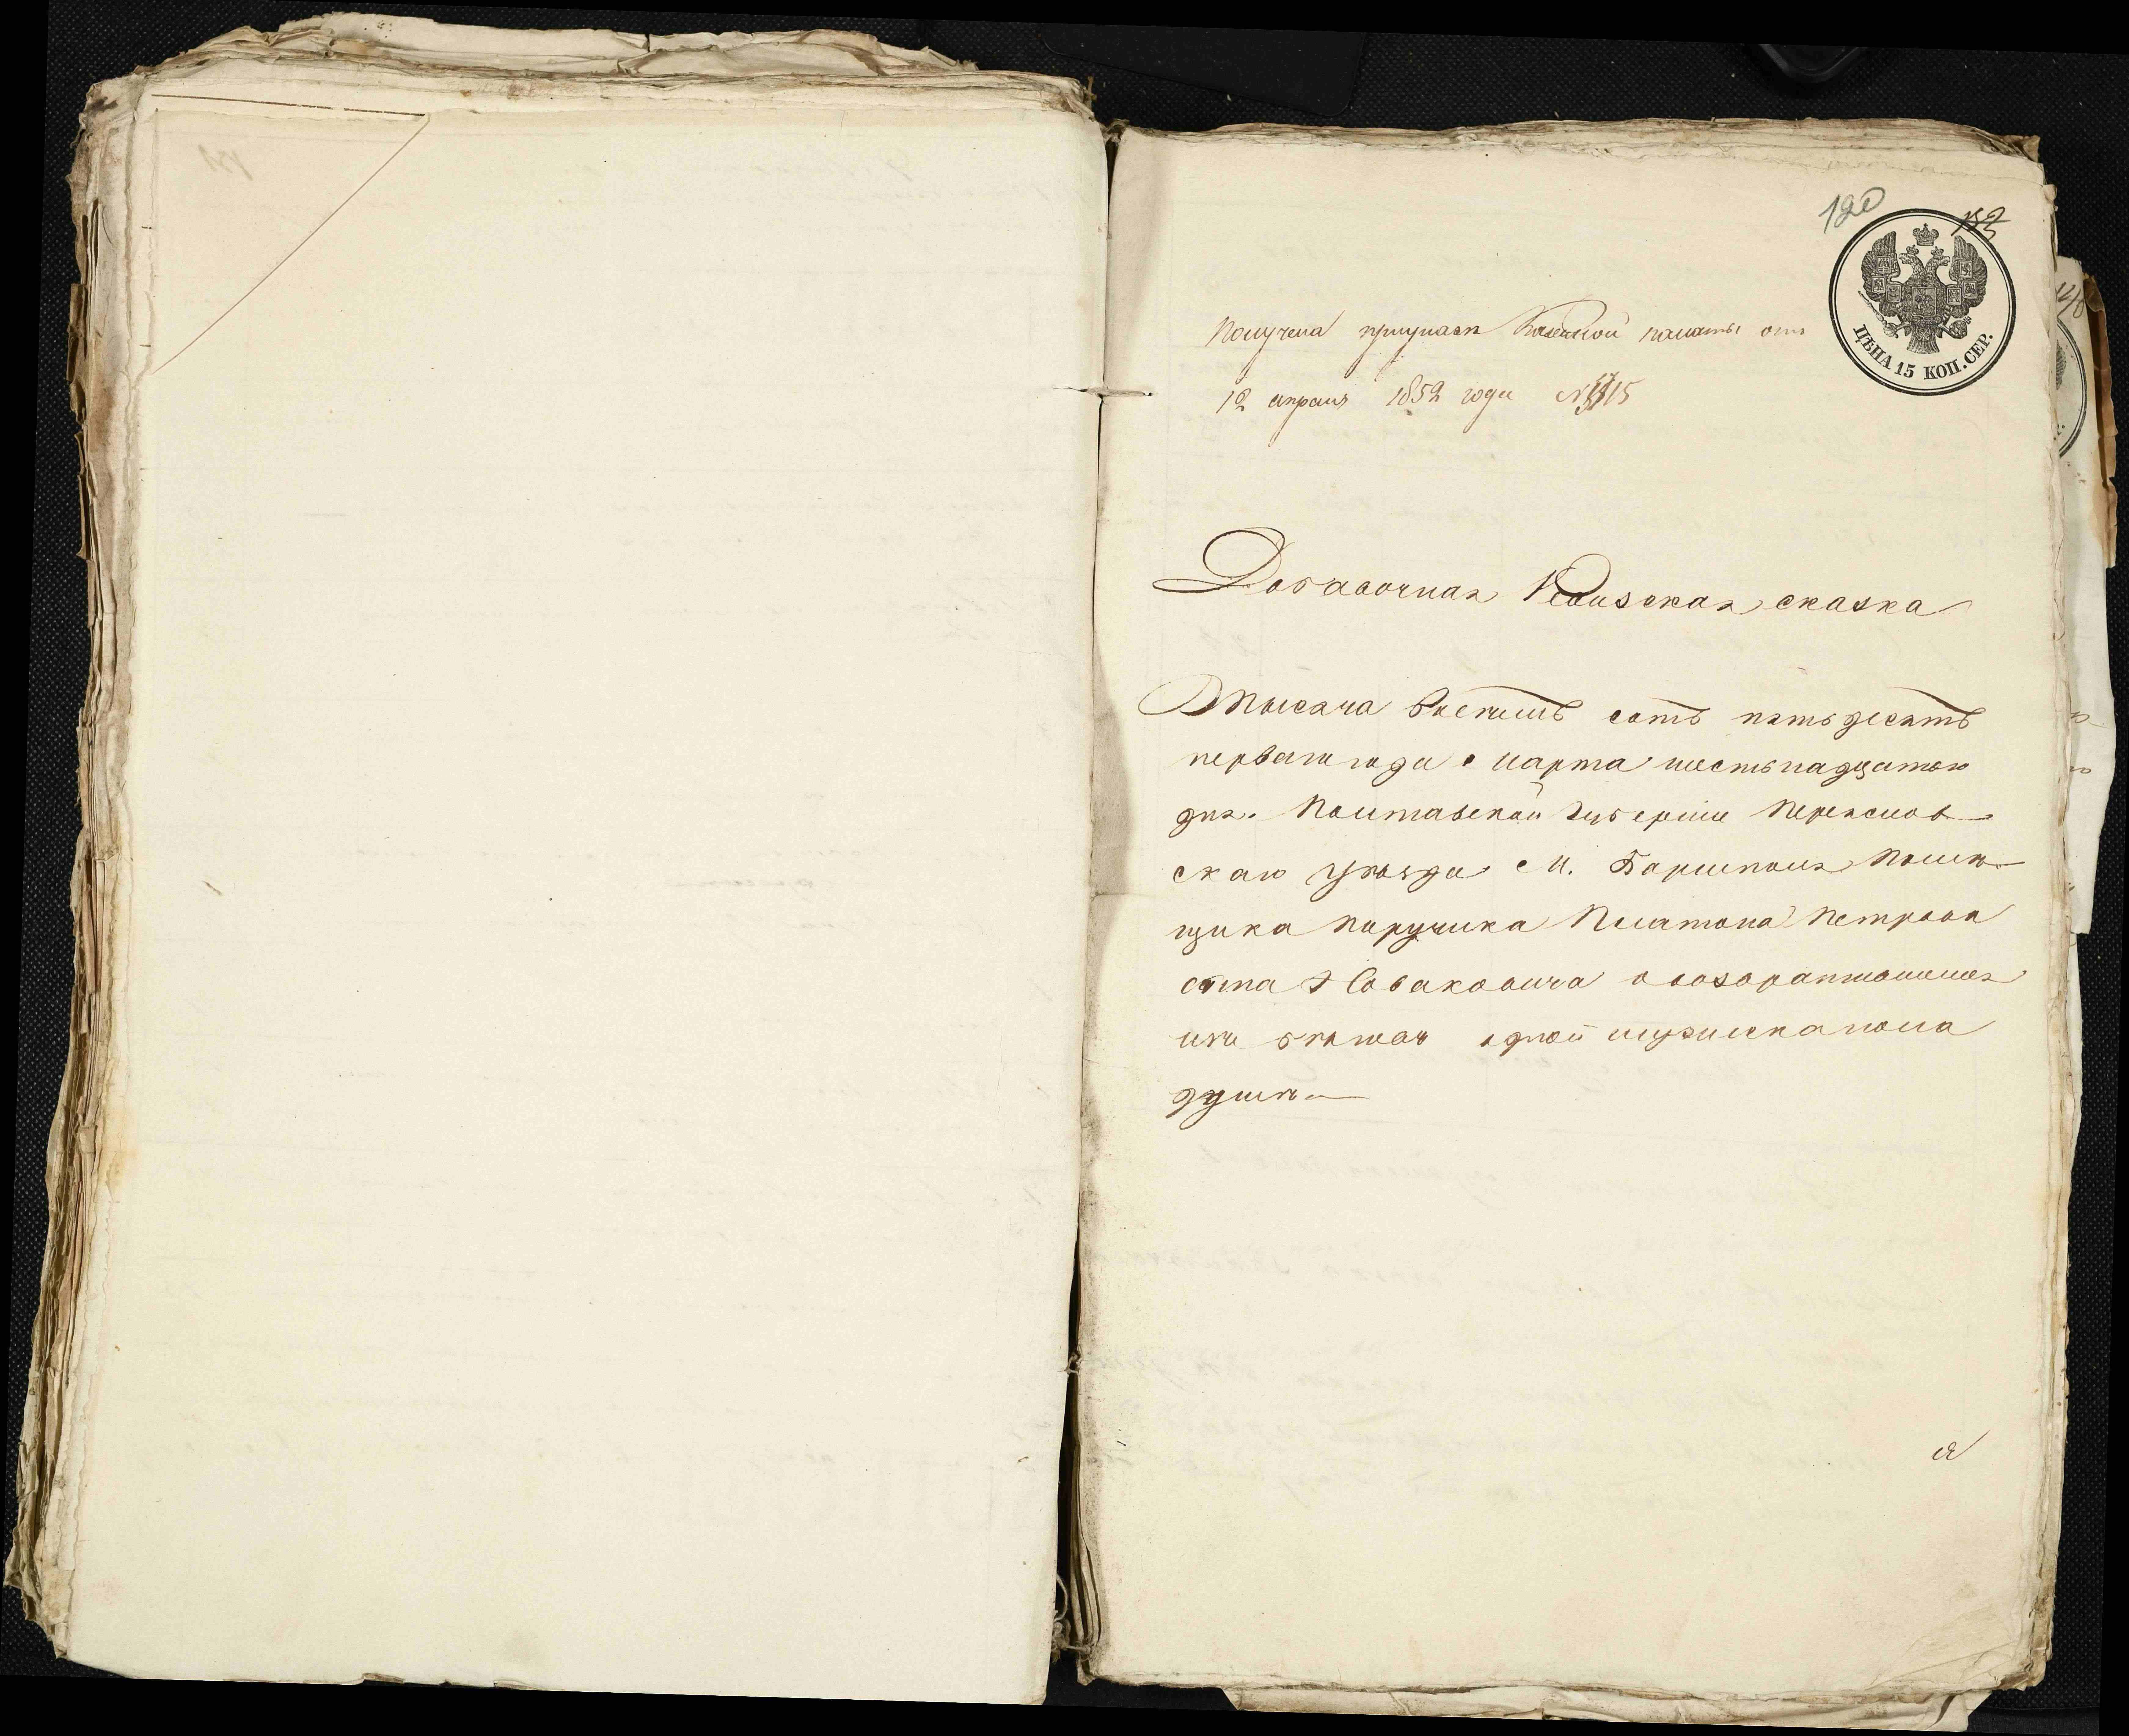 120
153
ЦѢНА 15 КОП. СЕР.
Получена при указѣ Казенной палаты отъ
12 апреля 1852 года №
Добавочная Ревизская сказка
Тысяча восемь сотъ пятьдесятъ
перваго года марта шестьнадцатого
дня. Полтавской губернии Переяслов-
скаго уѣзда М. Борисполя помѣ-
щика поручика Платона Петрова
сына Новаковича о возвратившейся
изъ бѣговъ одной музеска пола
душѣ